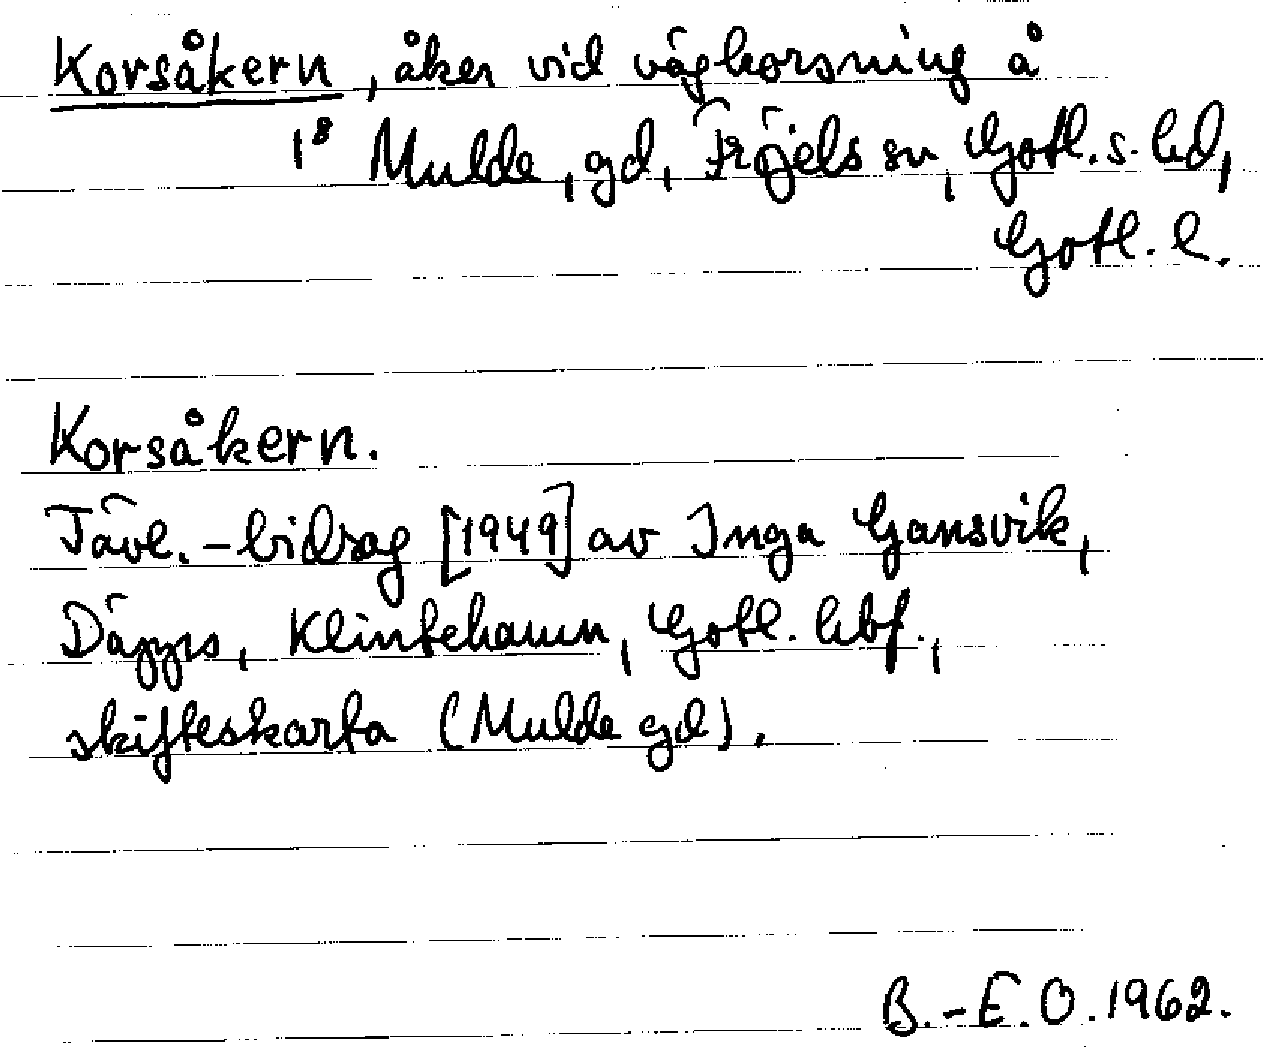 Korsåkern, åker vid vägkorsning å
1⁸ Mulde, gd, Fröjels sn, Gotl. s. hd,
Gotl. l.
Korsåkern.
Tävl.-bidrag [1949] av Inga Gansvik,
Däpps, Klintehamn, Gotl. hbf.,
skifteskarta (Mulde gd).
B.-E. O. 1962.